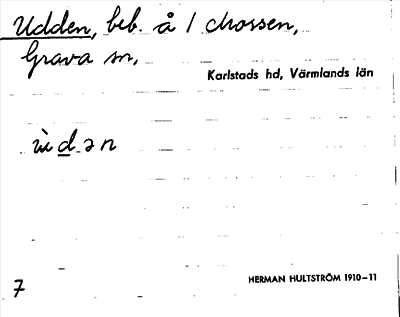 Udden, beb. å / chossen,
Grava sn,
Karlstads hd, Värmlands län
ùdən
7
HERMAN HULTSTRÖM 1910–11